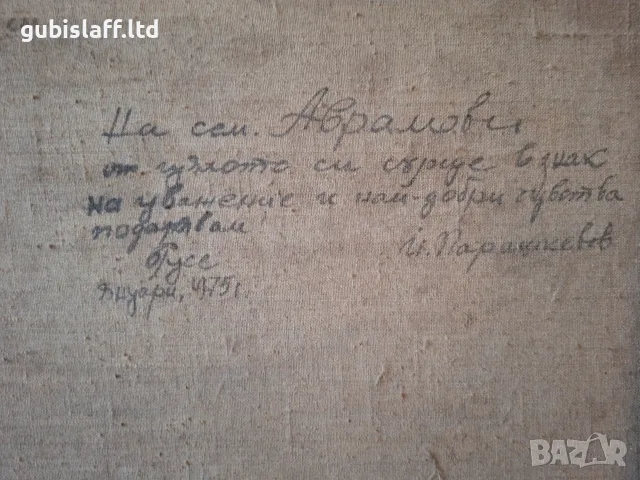 gubislaff.ltd
На сем. Аврамови
от цялото си сърце в знак
на уважение и най-добри чувства
подарявам
Ц. Парашкевов
Русе
Януари, 1975 г.
BAZAR